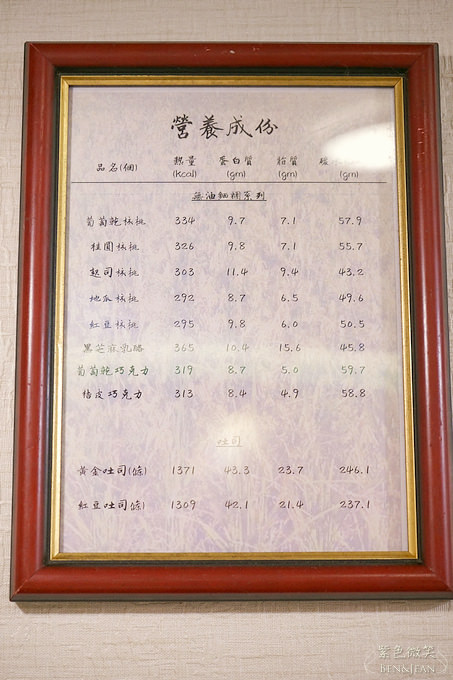 營養成份
品名(個) 熱量 蛋白質 脂質
(kcal) (gm) (gm) (gm)
無油 系列
葡萄乾核桃 334 9.7 7.1 57.9
桂圓核桃 326 9.8 7.1 55.7
起司核桃 303 11.4 9.4 43.2
地瓜核桃 292 8.7 6.5 49.6
紅豆核桃 295 9.8 6.0 50.5
黑芝麻乳酪 365 10.4 15.6 45.8
葡萄乾巧克力 319 8.7 5.0 59.7
桔皮巧克力 313 8.4 4.9 58.8
吐司
黃金吐司(條) 1371 43.3 23.7 246.1
紅豆吐司(條) 1309 42.1 21.4 237.1
紫色微笑
BEN&JEAN